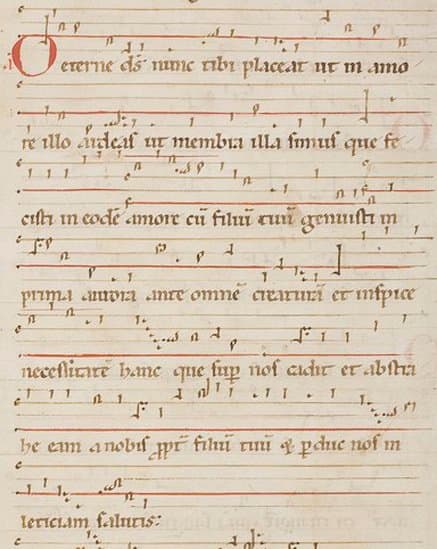 O eterne ds̄ nunc tibi placeat ut in amo
re illo ardeas ut membra illa simus que fe
cisti in eodē amore cū filiū tuū genuisti in
prima aurora ante omnē creaturā et inspice
necessitatē hanc que sup nos cadit et abstra
he eam a nobis ꝓpt̄ filiū tuū ⁊ ꝑduc nos in
leticiam salutis.